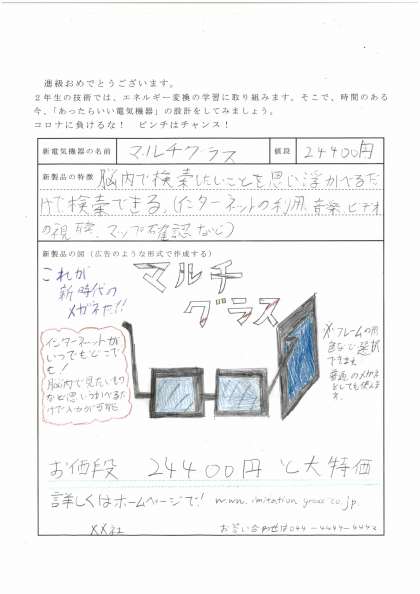 進級おめでとうございます。
2年生の技術では、エネルギー変換の学習に取り組みます。そこで、時間のある
今、「あったらいい電気機器」の設計をしてみましょう。
コロナに負けるな！ ピンチはチャンス！
新電気機器の名前 マルチグラス 値段 24400円
新製品の特徴 脳内で検索したいことを思い浮かべるだ
けで検索できる。(インターネットの利用、音楽、ビデオ
の視聴、マップ確認など)
新製品の図（広告のような形式で作成する）
これが
新時代の
メガネだ!!
マルチ
グラス
インターネットが
いつでもどこで
も!
脳内で見たいもの
などを思いうかべるだ
けで入力が可能
※フレームの形
色など選択
できます
普通のメガネ
としても使えます。
お価段 24400円と大特価
詳しくはホームページで!
××社
お問い合わせは